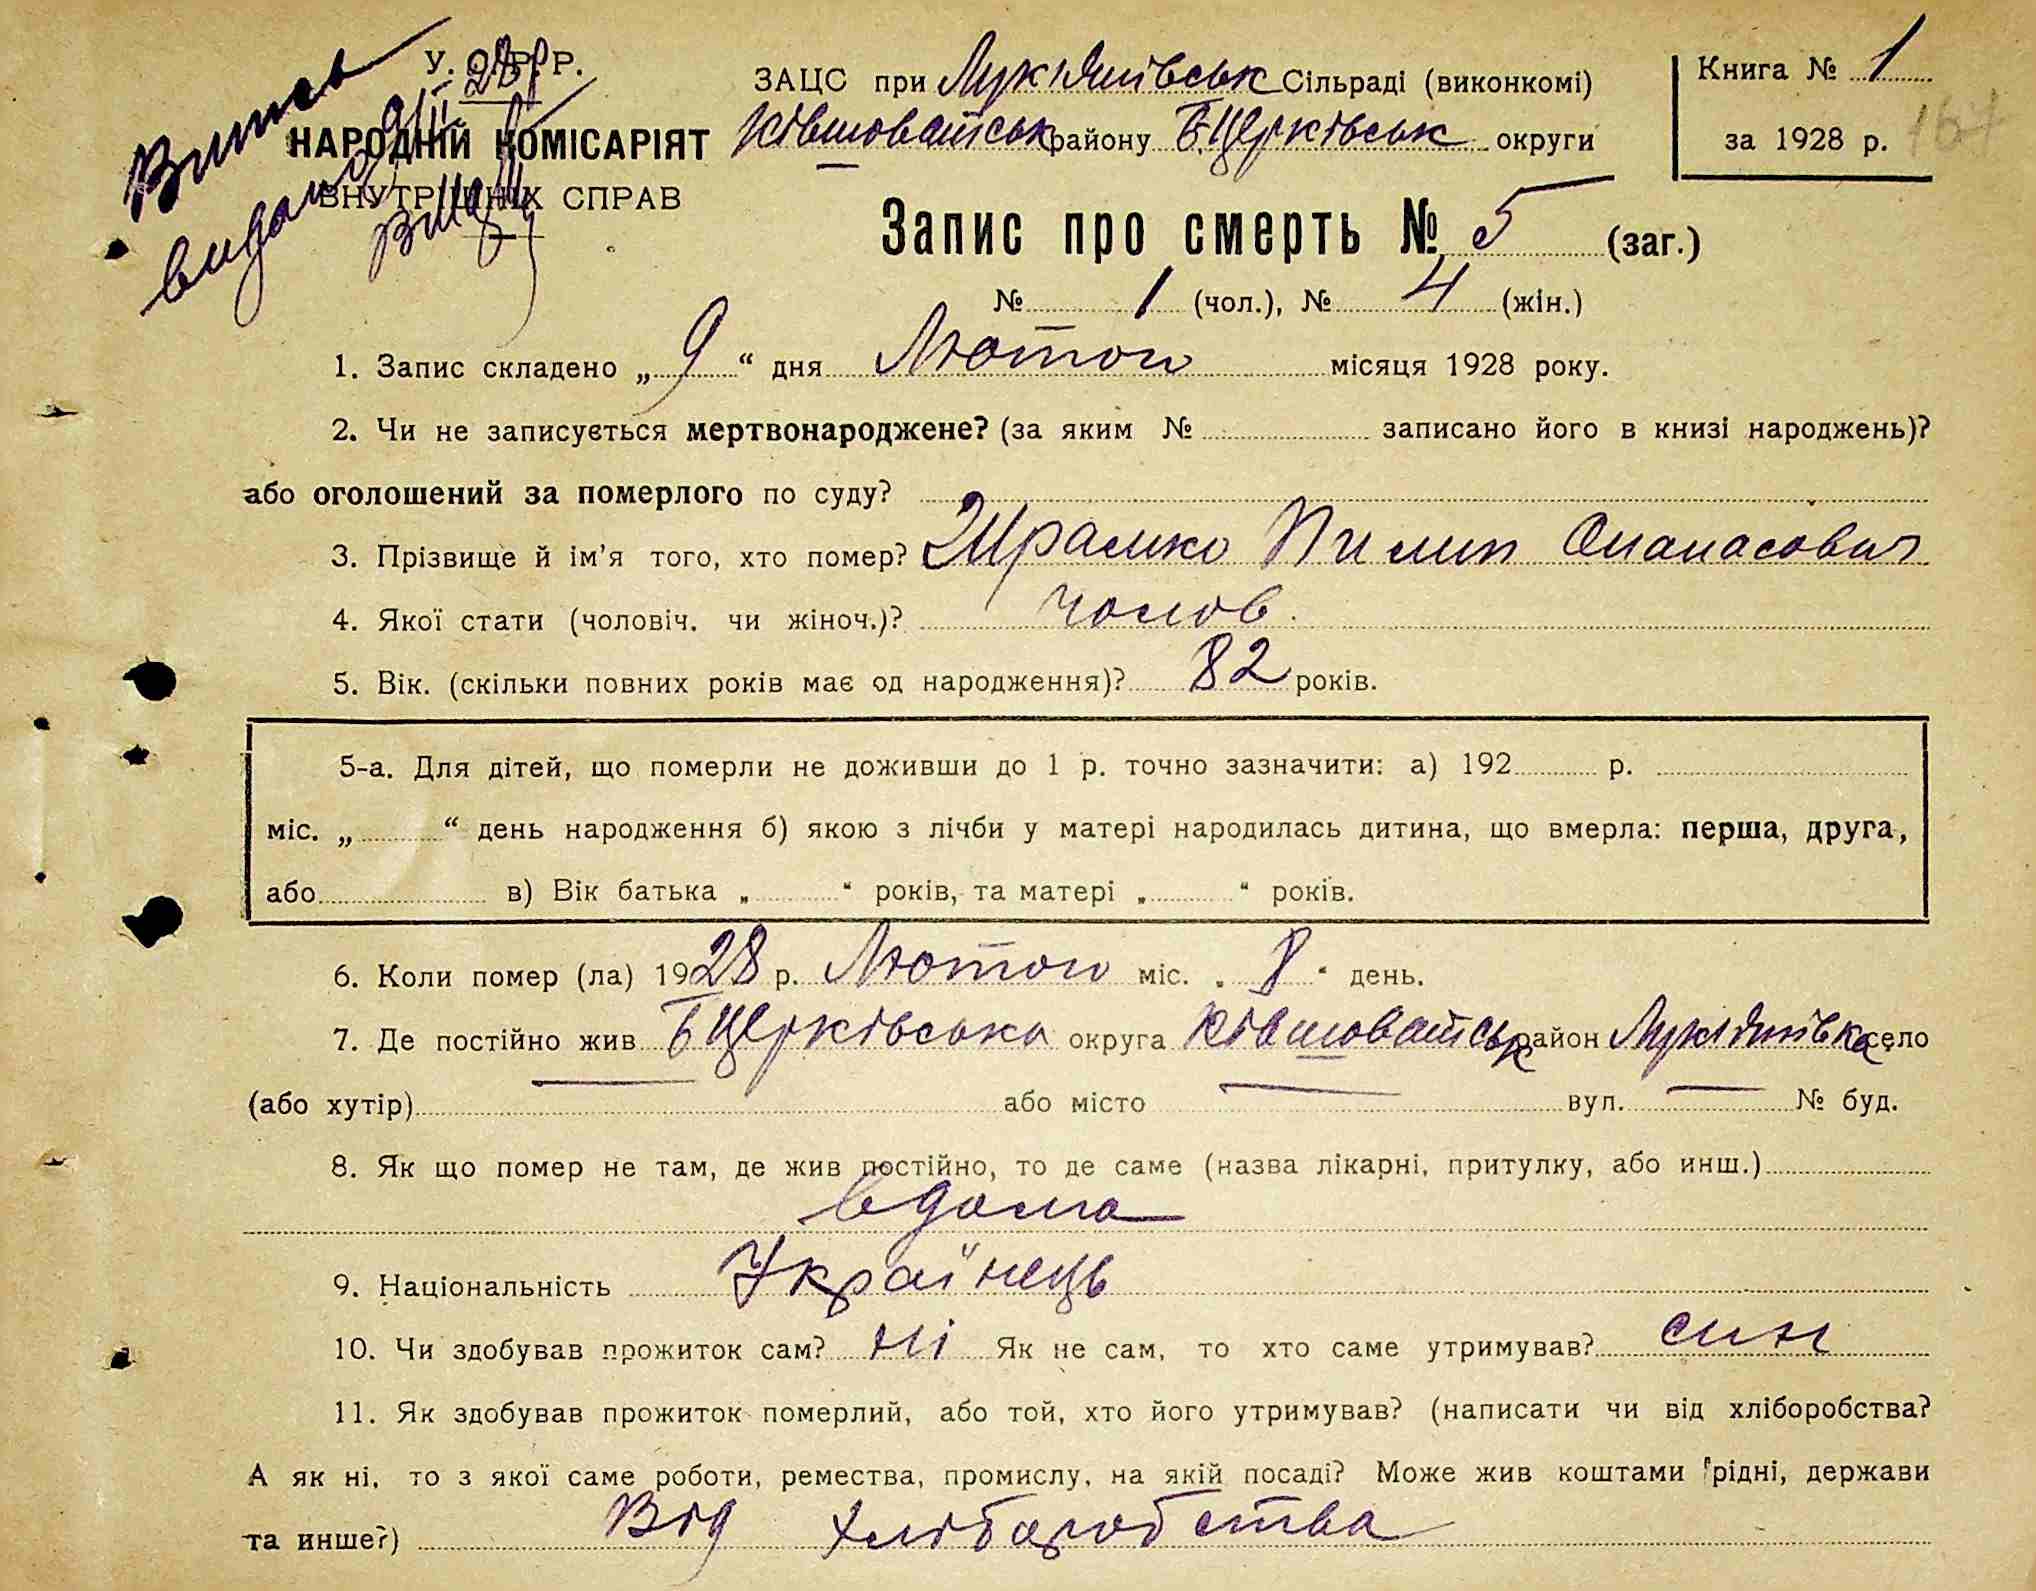 Витяг
видано 9/II 28 р
У. С. Р. Р.
НАРОДНІЙ КОМІСАРІЯТ
ВНУТРІШНІХ СПРАВ
ЗАЦС при Лукіянівськ Сільраді (виконкомі)
Ківшоватськ району Б Церківськ округи
Книга № 1
за 1928 р.
167
Запис про смерть № 5 (заг.)
№ 1 (чол.), № 4 (жін.)
1. Запис складено „ 9 “ дня Лютого місяця 1928 року.
2. Чи не записується мертвонароджене? (за яким № записано його в книзі народжень)?
або оголошений за померлого по суду?
3. Прізвище й ім'я того, хто помер? Шрамко Пилип Опанасович
4. Якої стати (чоловіч. чи жіноч.)? чолов.
5. Вік. (скільки повних років має од народження)? 82 років.
5-а. Для дітей, що померли не доживши до 1 р. точно зазначити: а) 192 р.
міс. „ “ день народження б) якою з лічби у матері народилась дитина, що вмерла: перша, друга,
або в) Вік батька „ “ років, та матері „ “ років.
6. Коли помер (ла) 1928 р. Лютого міс. „ 8 “ день.
7. Де постійно жив Б Церківська округа Ківшоватськ район Лукіянівка село
(або хутір) — або місто — вул. — № буд.
8. Як що помер не там, де жив постійно, то де саме (назва лікарні, притулку, або инш.)
вдома
9. Національність Українець
10. Чи здобував прожиток сам? ні Як не сам, то хто саме утримував? син
11. Як здобував прожиток померлий, або той, хто його утримував? (написати чи від хліборобства?
А як ні, то з якої саме роботи, ремества, промислу, на якій посаді? Може жив коштами рідні, держави
та инше?) Від хліборобства